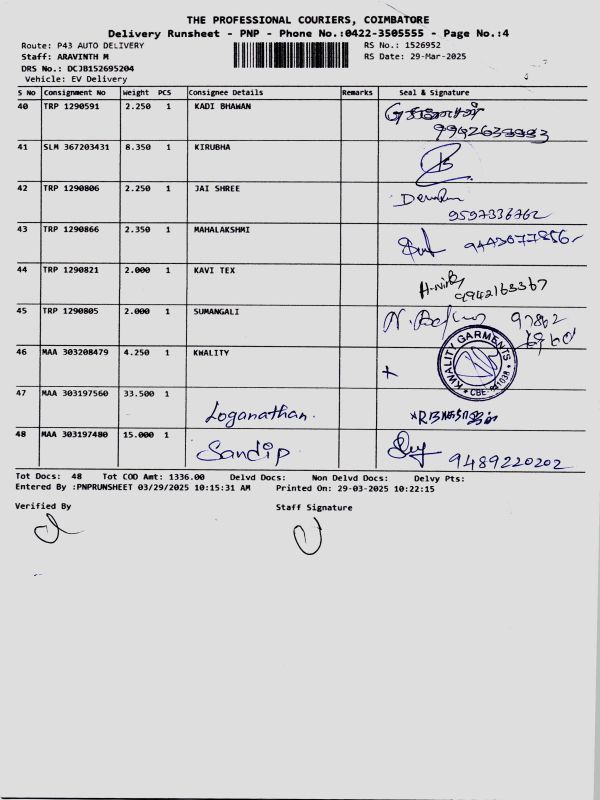 THE PROFESSIONAL COURIERS, COIMBATORE
Delivery Runsheet - PNP - Phone No.:0422-3505555 - Page No.:4
Route: P43 AUTO DELIVERY RS No.: 1526952
Staff: ARAVINTH M RS Date: 29-Mar-2025
DRS No.: DCJB152695204
Vehicle: EV Delivery
S No Consignment No Weight PCS Consignee Details Remarks Seal & Signature
40 TRP 1290591 2.250 1 KADI BHAWAN
41 SLM 367203431 8.350 1 KIRUBHA
42 TRP 1290806 2.250 1 JAI SHREE
9597336762
43 TRP 1290866 2.350 1 MAHALAKSHMI
44 TRP 1290821 2.000 1 KAVI TEX
9942163367
45 TRP 1290805 2.000 1 SUMANGALI
46 MAA 303208479 4.250 1 KWALITY
KWALITY GARMENTS
47 MAA 303197560 33.500 1 Loganathan.
48 MAA 303197480 15.000 1 Sandip 9489220202
Tot Docs: 48 Tot COD Amt: 1336.00 Delvd Docs: Non Delvd Docs: Delvy Pts:
Entered By :PNPRUNSHEET 03/29/2025 10:15:31 AM Printed On: 29-03-2025 10:22:15
Verified By Staff Signature